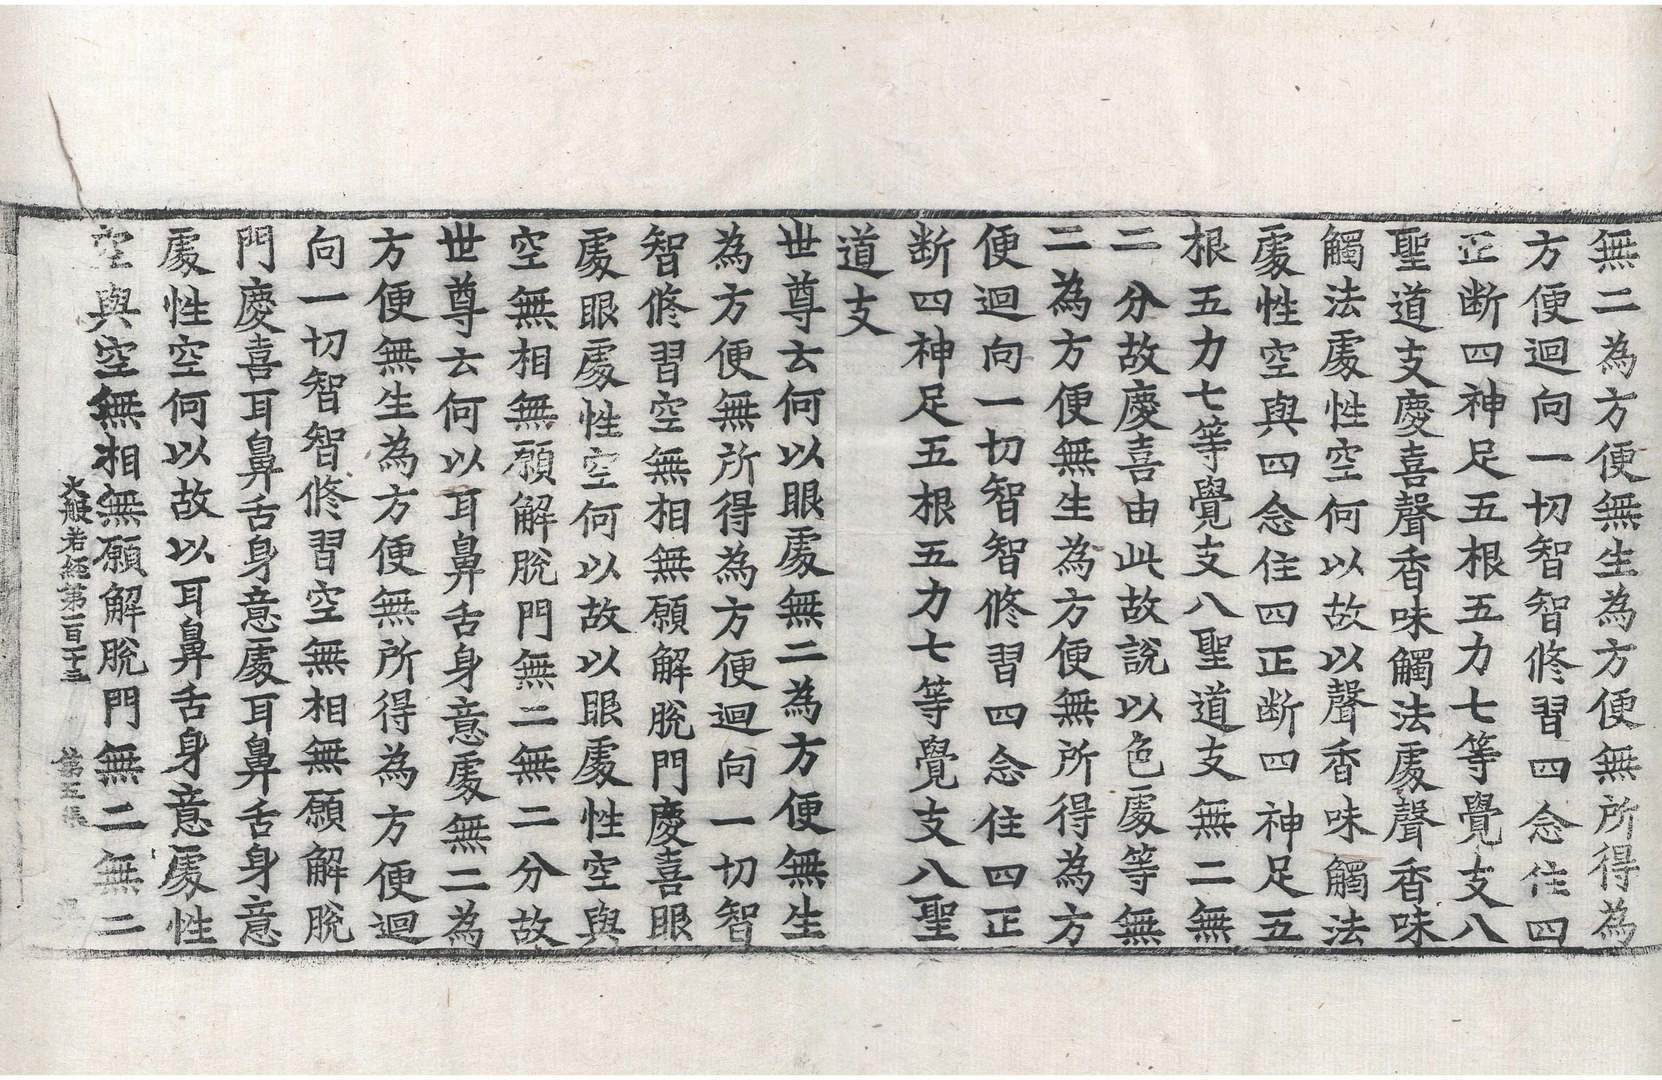 無二為方便無生為方便無所得為
方便迴向一切智智修習四念住四
正断四神足五根五力七等覺支八
聖道支慶喜聲香味觸法處聲香味
觸法處性空何以故以聲香味觸法
處性空與四念住四正断四神足五
根五力七等覺支八聖道支無二無
二分故慶喜由此故說以色處等無
二為方便無生為方便無所得為方
便迴向一切智智修習四念住四正
断四神足五根五力七等覺支八聖
道支
世尊云何以眼處無二為方便無生
為方便無所得為方便迴向一切智
智修習空無相無願解脫門慶喜眼
處眼處性空何以故以眼處性空與
空無相無願解脫門無二無二分故
世尊云何以耳鼻舌身意處無二為
方便無生為方便無所得為方便迴
向一切智智修習空無相無願解脫
門慶喜耳鼻舌身意處耳鼻舌身意
處性空何以故以耳鼻舌身意處性
空與空無相無願解脫門無二無二
大般若經第一百二十三 第五張